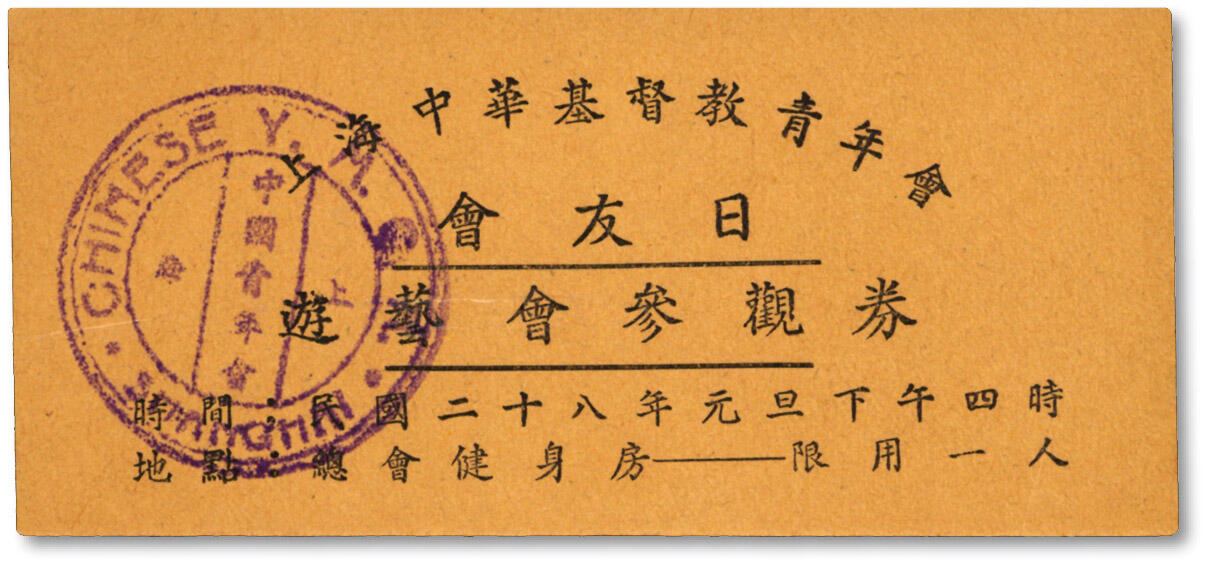 上海中華基督教青年會
會友日
遊藝會參觀券
時間：民國二十八年元旦下午四時
地點：總會健身房——限用一人
CHINESE Y. M. C. A.
中國青年會
上海
SHANGHAI